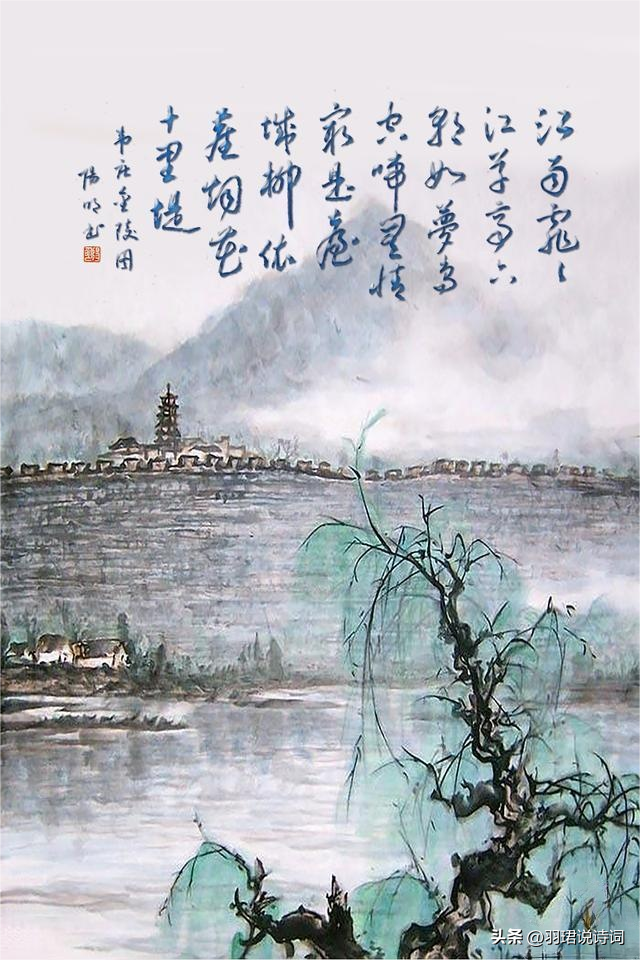 江雨霏〻
江草齐六
朝如夢鸟
空啼无情
最是臺
城柳依
舊烟笼
十里堤
韦庄金陵图
阳明书
头条 @羽珺说诗词